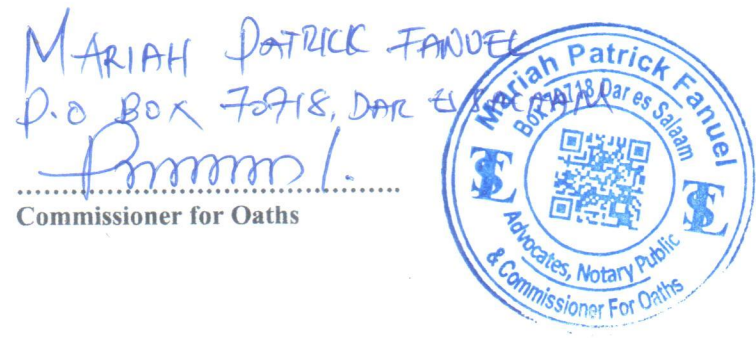 MARIAH PATRICK FANUEL
P.O BOX 70718, DAR ES SALAAM
Commissioner for Oaths
Mariah Patrick Fanuel
Box 70718 Dar es Salaam
Advocates, Notary Public
& Commissioner For Oaths